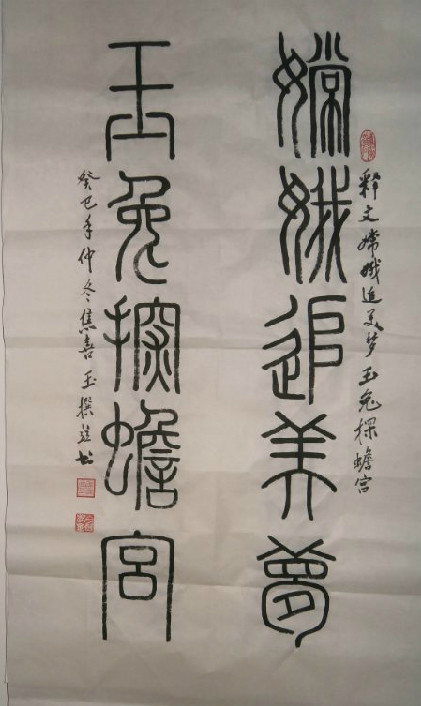 释文嫦娥追美梦玉兔探蟾宫
嫦娥追美夢
玉兔探蟾宫
癸巳年仲冬焦喜玉撰並书